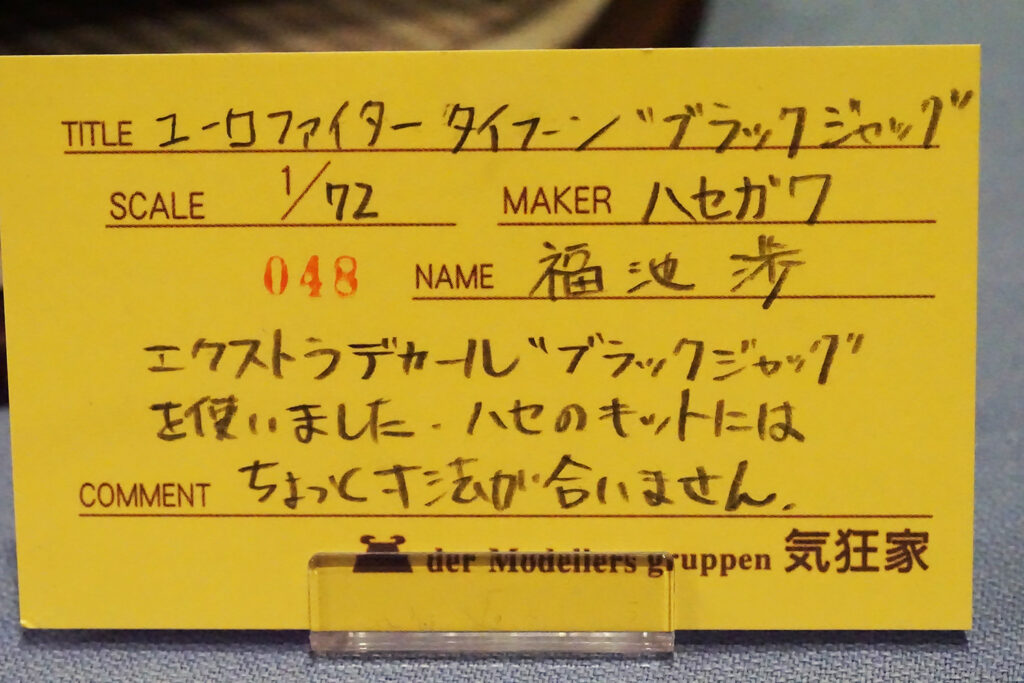 TITLE ユーロファイター タイフーン"ブラックジャック"
SCALE 1/72 MAKER ハセガワ
048 NAME 福池 渉
エクストラデカール"ブラックジャック"
を使いました.ハセのキットには
COMMENT ちょっと寸法が合いません.
der Modellers gruppen 気狂家